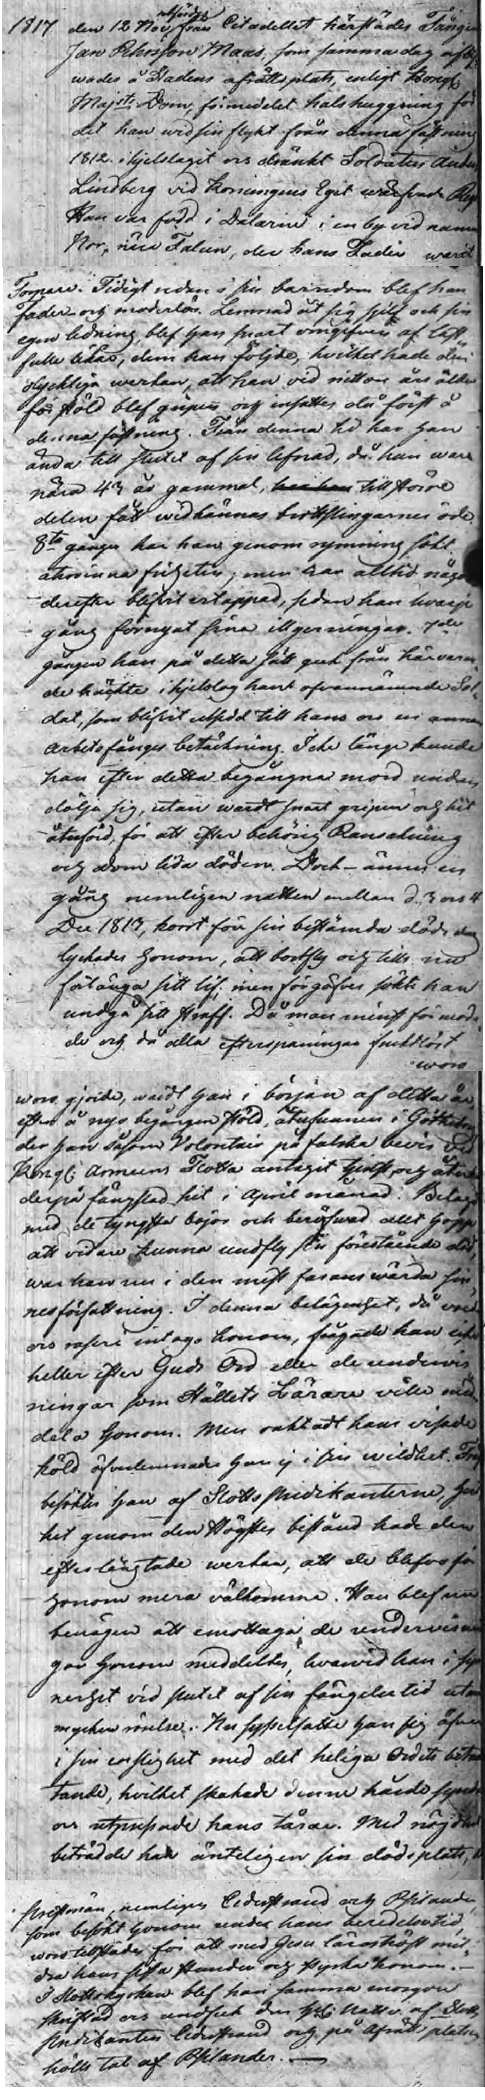 1817 den 12 Nov. från Citadellet härstädes Fången
Jan Petersson Maas, som samma dag
wades å Stadens afrättsplats, enligt Kongl.
Majsts Dom, förmedelst halshuggning för
det han wid sin flykt från denna fästning
1812 ihjelslagit och dränkt Soldaten
Lindberg vid Konungens Eget
Han var född i Dalarne i en by vid namn
Nor, nära Falun, der hans Fader warit
Tidigt redan i sin barndom blef han
Fader- och moderlös. Lemnad åt sig sjelf och sin
egen ledning blef han snart omgifwen af last-
fulla wänner, dem han följde, hvilket hade den
olyckliga werkan, att han vid nitton års ålder
för stöld blef gripen och insattes då först å
denna fästning. Från denna tid har han
ända till slutet af sin lefnad, då han ware
nära 43 år gammal, till större
delen fått widkännas brottslingarnes öde.
8te gånger har han genom rymning sökt
återvinna friheten; men har alltid någon
derefter blifvit ertappad, sedan han hwarje
gång förnyat sina illgerningar. 7de
gången han på detta sätt gick från härvaran-
de häckte ihjelslog han ofvannämnde Sol-
dat, som blifvit utsedd till hans och en annan
arbetsfånges betäckning. Icke länge kunde
han efter detta begångna mord undan-
dölja sig, utan wardt snart gripen och hit
återförd, för att efter behörig Ransakning
och dom lida döden. Doch ännu en
gång nemligen natten mellan d. 3 och 4
Dec 1813, kort för sin bestämda döds dag
lyckades honom, att bortfly och tills nu
förlänga sitt lif, men förgäfves sökte han
undgå sitt straff. Då man minst förmoda-
de och då alla efterspaningar fruktlöst
woro
woro gjorde, wardt han i början af detta år
efter å nyo begången stöld, återfunnen i Götheborg
der han såsom Volontair på falska bevis wid
Kongl. Arméens Flotta antagit tjenst, och åter
derpå fängslad hit i April månad. Belagd
med de tyngsta bojor och beröfwad allt hopp
att vidare kunna undfly sin förestående död
war han nu i den mest fasanswärda sin-
nesförfattning. I denna belägenhet, då
och raseri intogo honom, frågade han
heller efter Guds Ord eller de underwis-
ningar som Ställets Lärare wille med-
dela honom. Men oaktadt hans visade
köld öfverlemnades han ej i sin wildhet.
besöktes han af Slottspredikanterne,
het genom den Högstes bistånd hade den
efterlängtade werkan, att de blefvo för
honom mera välkomne. Han blef nu
benägen att emottaga de undervisnin-
gar honom meddeltes, hvarvid han i syn-
nerhet vid slutet af sin fängelsetid
mycken rörelse. Nu sysselsatte han sig äfven
i sin enslighet med det heliga Ordets betrak-
tande, hvilket skakade denne hårde syndare
och utpressade hans tårar. Med nöjdhet
beträdde han änteligen sin dödsplats,
nemligen Cederstrand och Psilander
som besökt honom under hans beredelsetid
woro tillstädes för att med Jesu läras tröst mil-
dra hans sista stunder och styrka honom.
I Slottskyrkan blef han samma morgon
skriftad och undfick den H. Nattv. af Slotts
Predikanten Cederstrand och på Afrättsplatsen
hölls tal af Psilander.